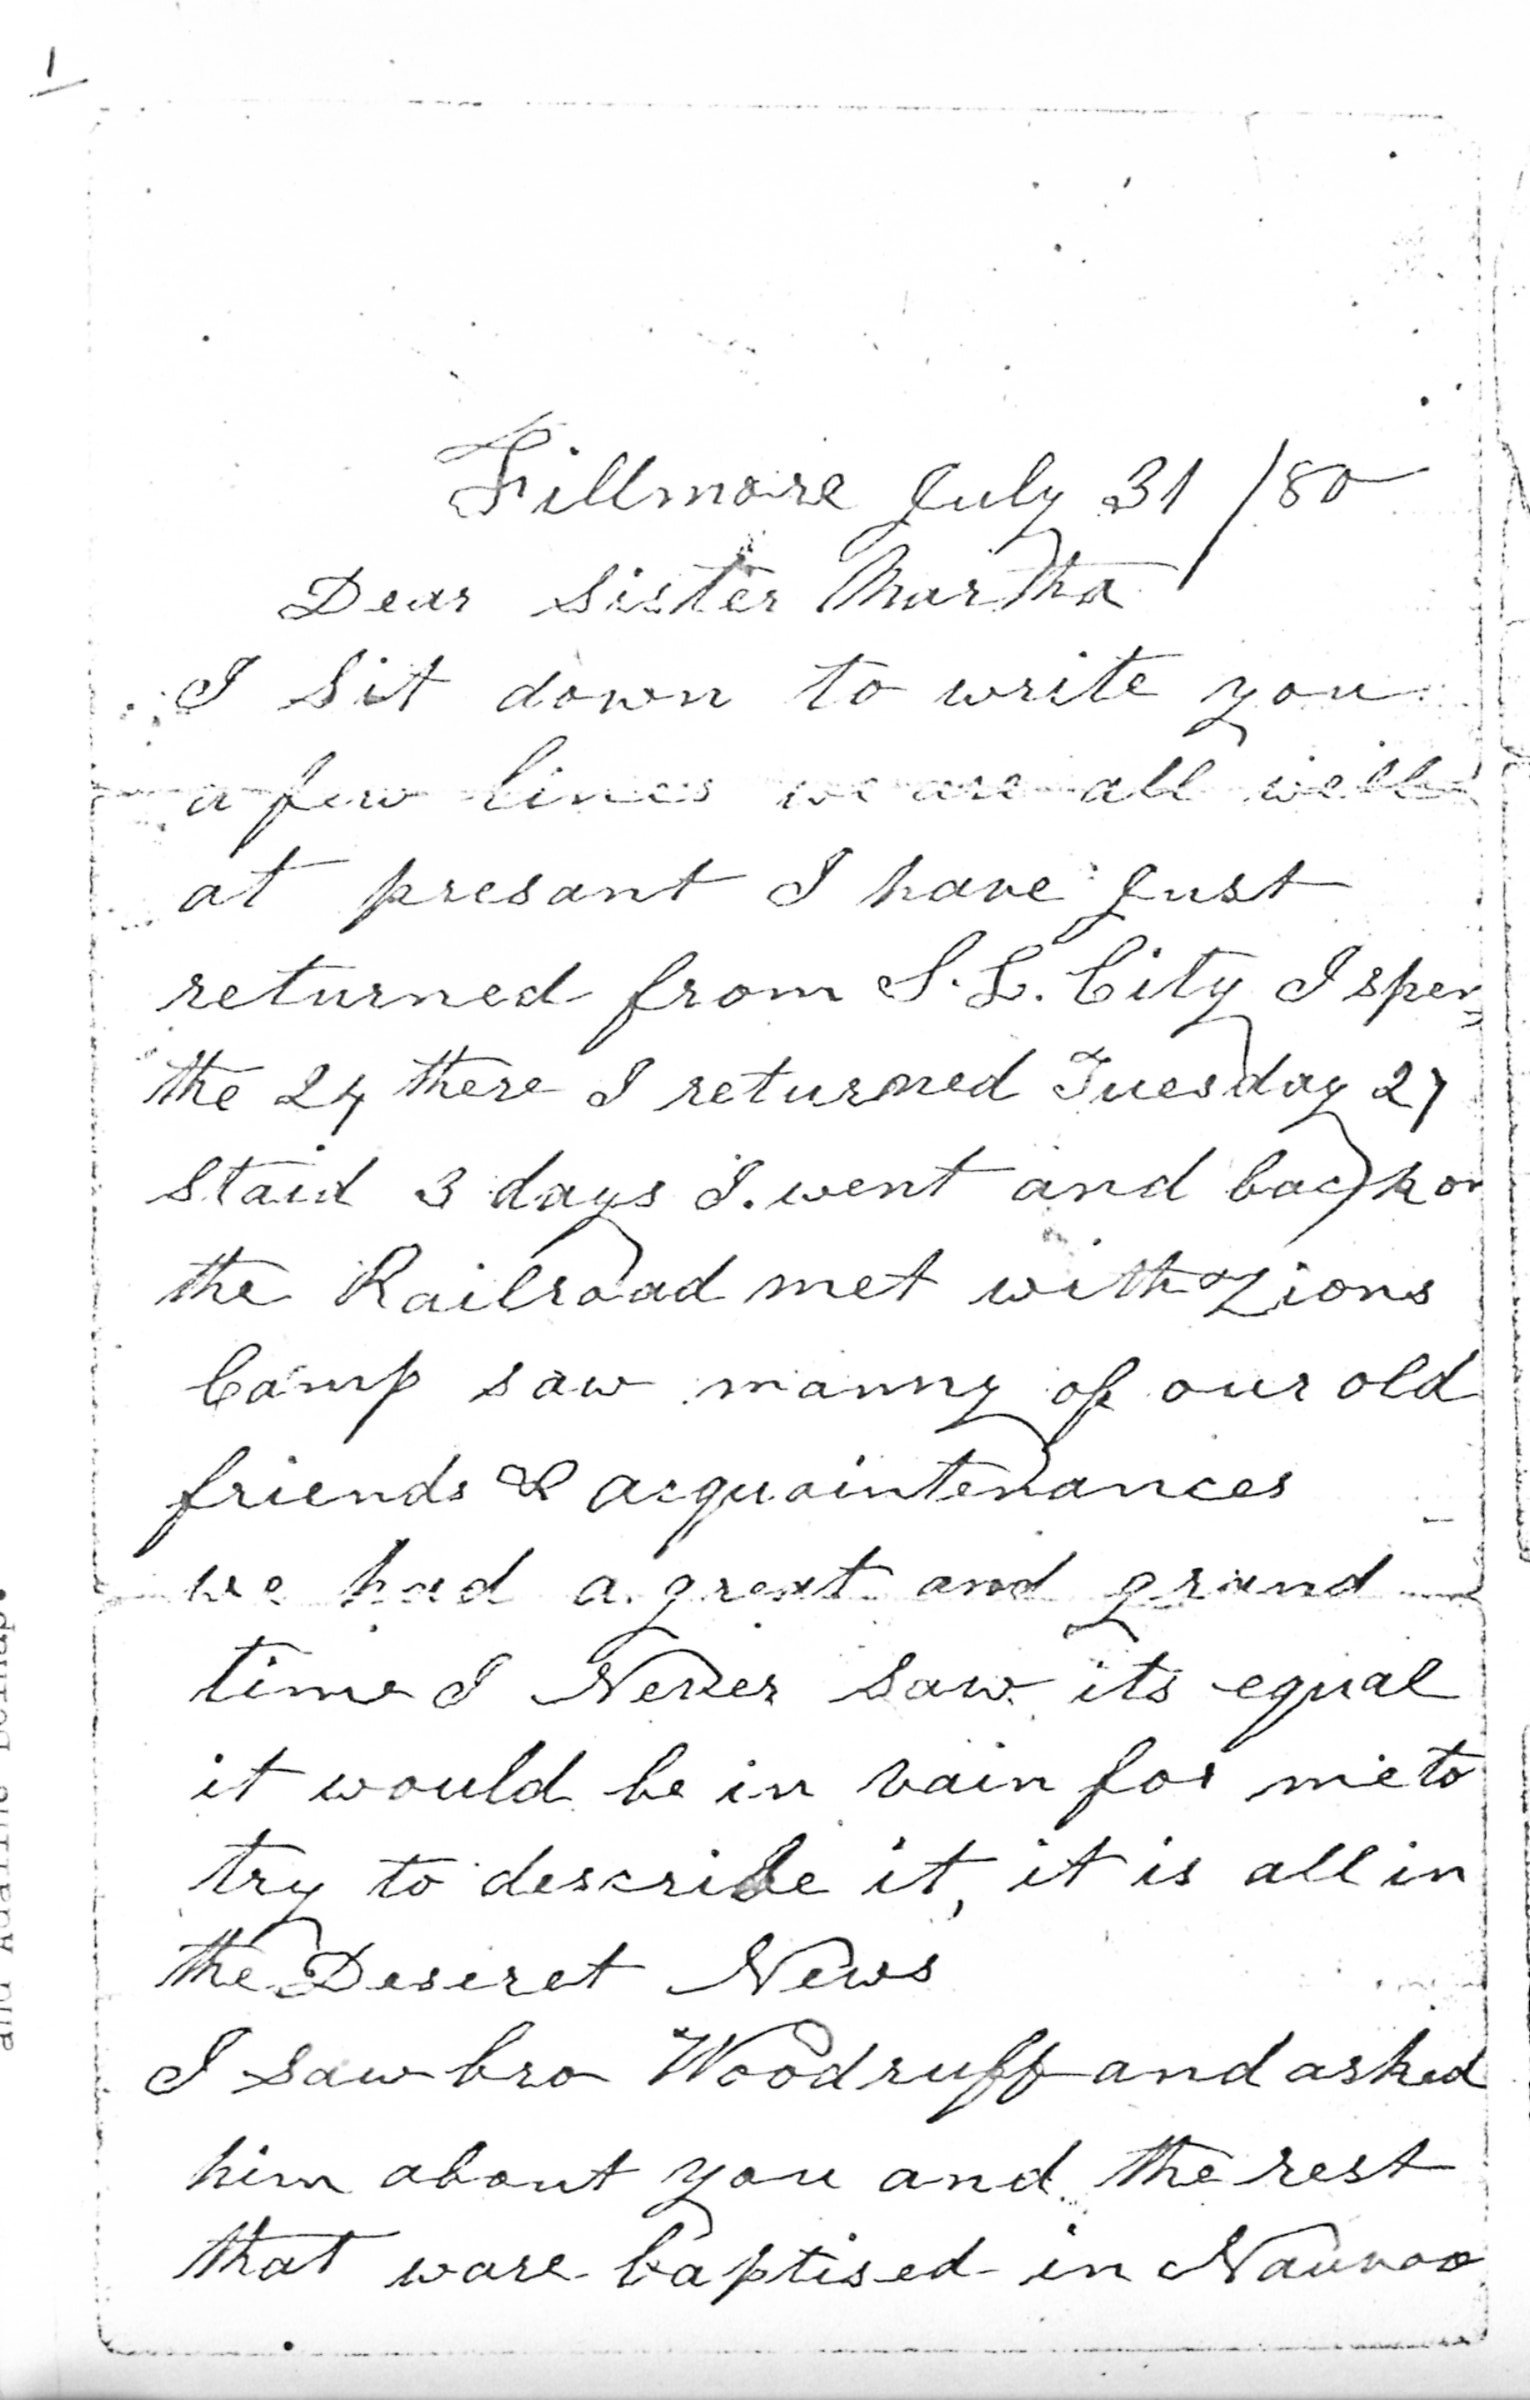 1
Fillmore July 31 / 80
Dear Sister Martha
I Sit down to write you
a few lines we are all well
at presant I have Just
returned from S. L. City I spen
the 24 there I returned Tuesday 27
Staid 3 days I. went and back on
the Railroad met with Zions
Camp saw manny of our old
friends & acquaintenances
we had a great and grand
time I Never saw its equal
it would be in vain for me to
try to describe it, it is all in
the Deseret News
I saw bro Woodruff and asked
him about you and the rest
that ware baptised in Nauvoo